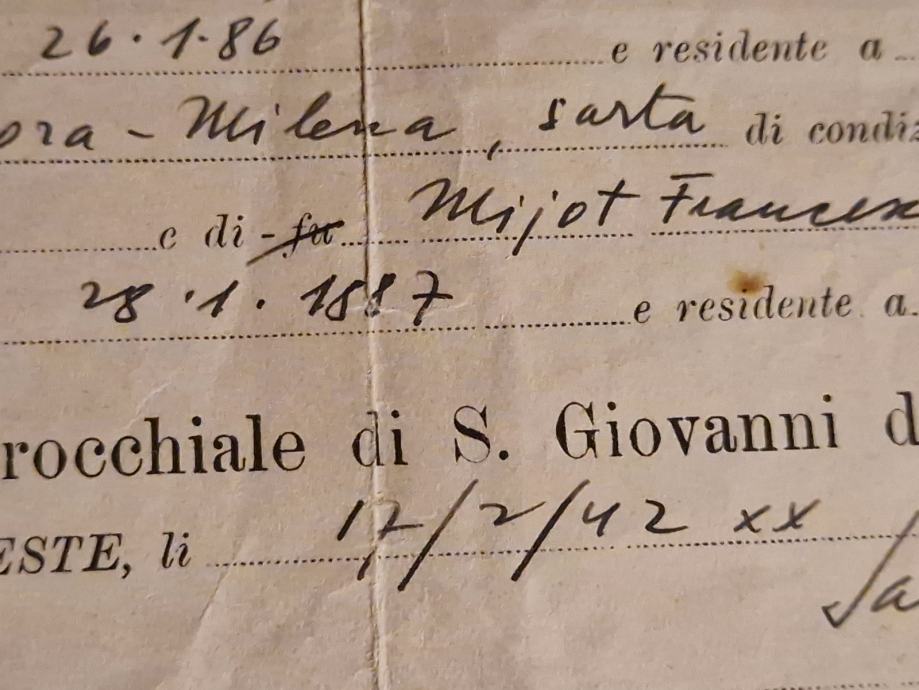 26.1.86 e residente a
ora - Milena, sarta di condiz
e di - fu Mijot Francesc
28.1.1887 e residente a
rocchiale di S. Giovanni d
ESTE, li 17/2/42 xx